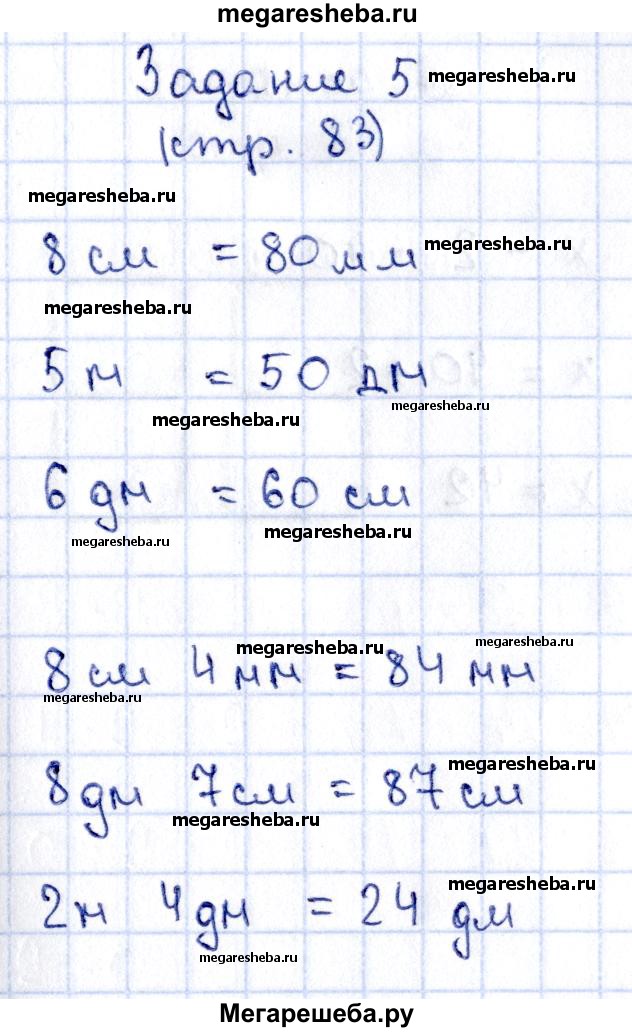 megaresheba.ru
Задание 5 megaresheba.ru
(стр. 83)
megaresheba.ru
8 см = 80 мм megaresheba.ru
megaresheba.ru
5 м = 50 дм
megaresheba.ru megaresheba.ru
6 дм = 60 см
megaresheba.ru megaresheba.ru
megaresheba.ru megaresheba.ru
8 см 4 мм = 84 мм
megaresheba.ru
megaresheba.ru
8 дм 7 см = 87 см
megaresheba.ru
megaresheba.ru
2 м 4 дм = 24 дм
megaresheba.ru
Мегарешеба.ру